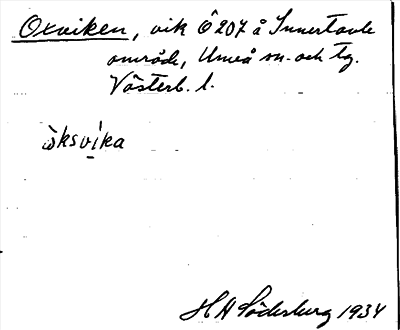 Oxviken, vik Ö 207 å Innertavle
område, Umeå sn. och tg.
Västerb. l.
ò̭ksvi̱ka
H H Söderburg 1934